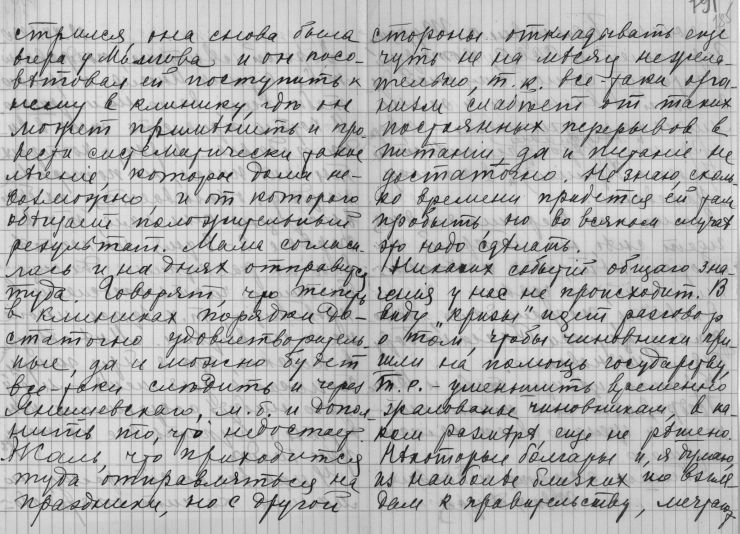 стрился, она снова была
вчера у Мълчова и он посо-
вѣтовал ей поступить к
нему в клинику, гдѣ он
может примѣнить и про-
вести систематически такое
лѣченіе, которое дома не-
возможно и от которого
обѣщает положительный
результат. Мама согласи-
лась и на днях отправится
туда. Говорят, что теперь
в клиниках порядки до-
статочно удовлетворитель-
ные, да и можно будет
все-таки слѣдить и через
Янишевскаго, м. б. и допол-
нить то, чтò недостает.
Жаль, что приходится
туда отправляться на
праздники, но с другой
791
стороны откладывать еще
чуть не на мѣсяц нежела-
тельно, т. к. все-таки орга-
низм слабѣет от таких
постоянных перерывов в
питаніи, да и питаніе не
достаточно. Не знаю, сколь-
ко времени придется ей там
пробыть, но во всяком случаѣ
это надо сдѣлать.
Никаких событій общаго зна-
ченія у нас не происходит. В
виду "кризы" идет разговор
о том, чтобы чиновники при-
шли на помощь государству,
т. е. - уменьшить временно
жалованье чиновникам, в ка-
ком размѣрѣ еще не рѣшено.
Нѣкоторые болгары и, я думаю,
из наиболѣе близких по взгля-
дам к правительству, мечтают